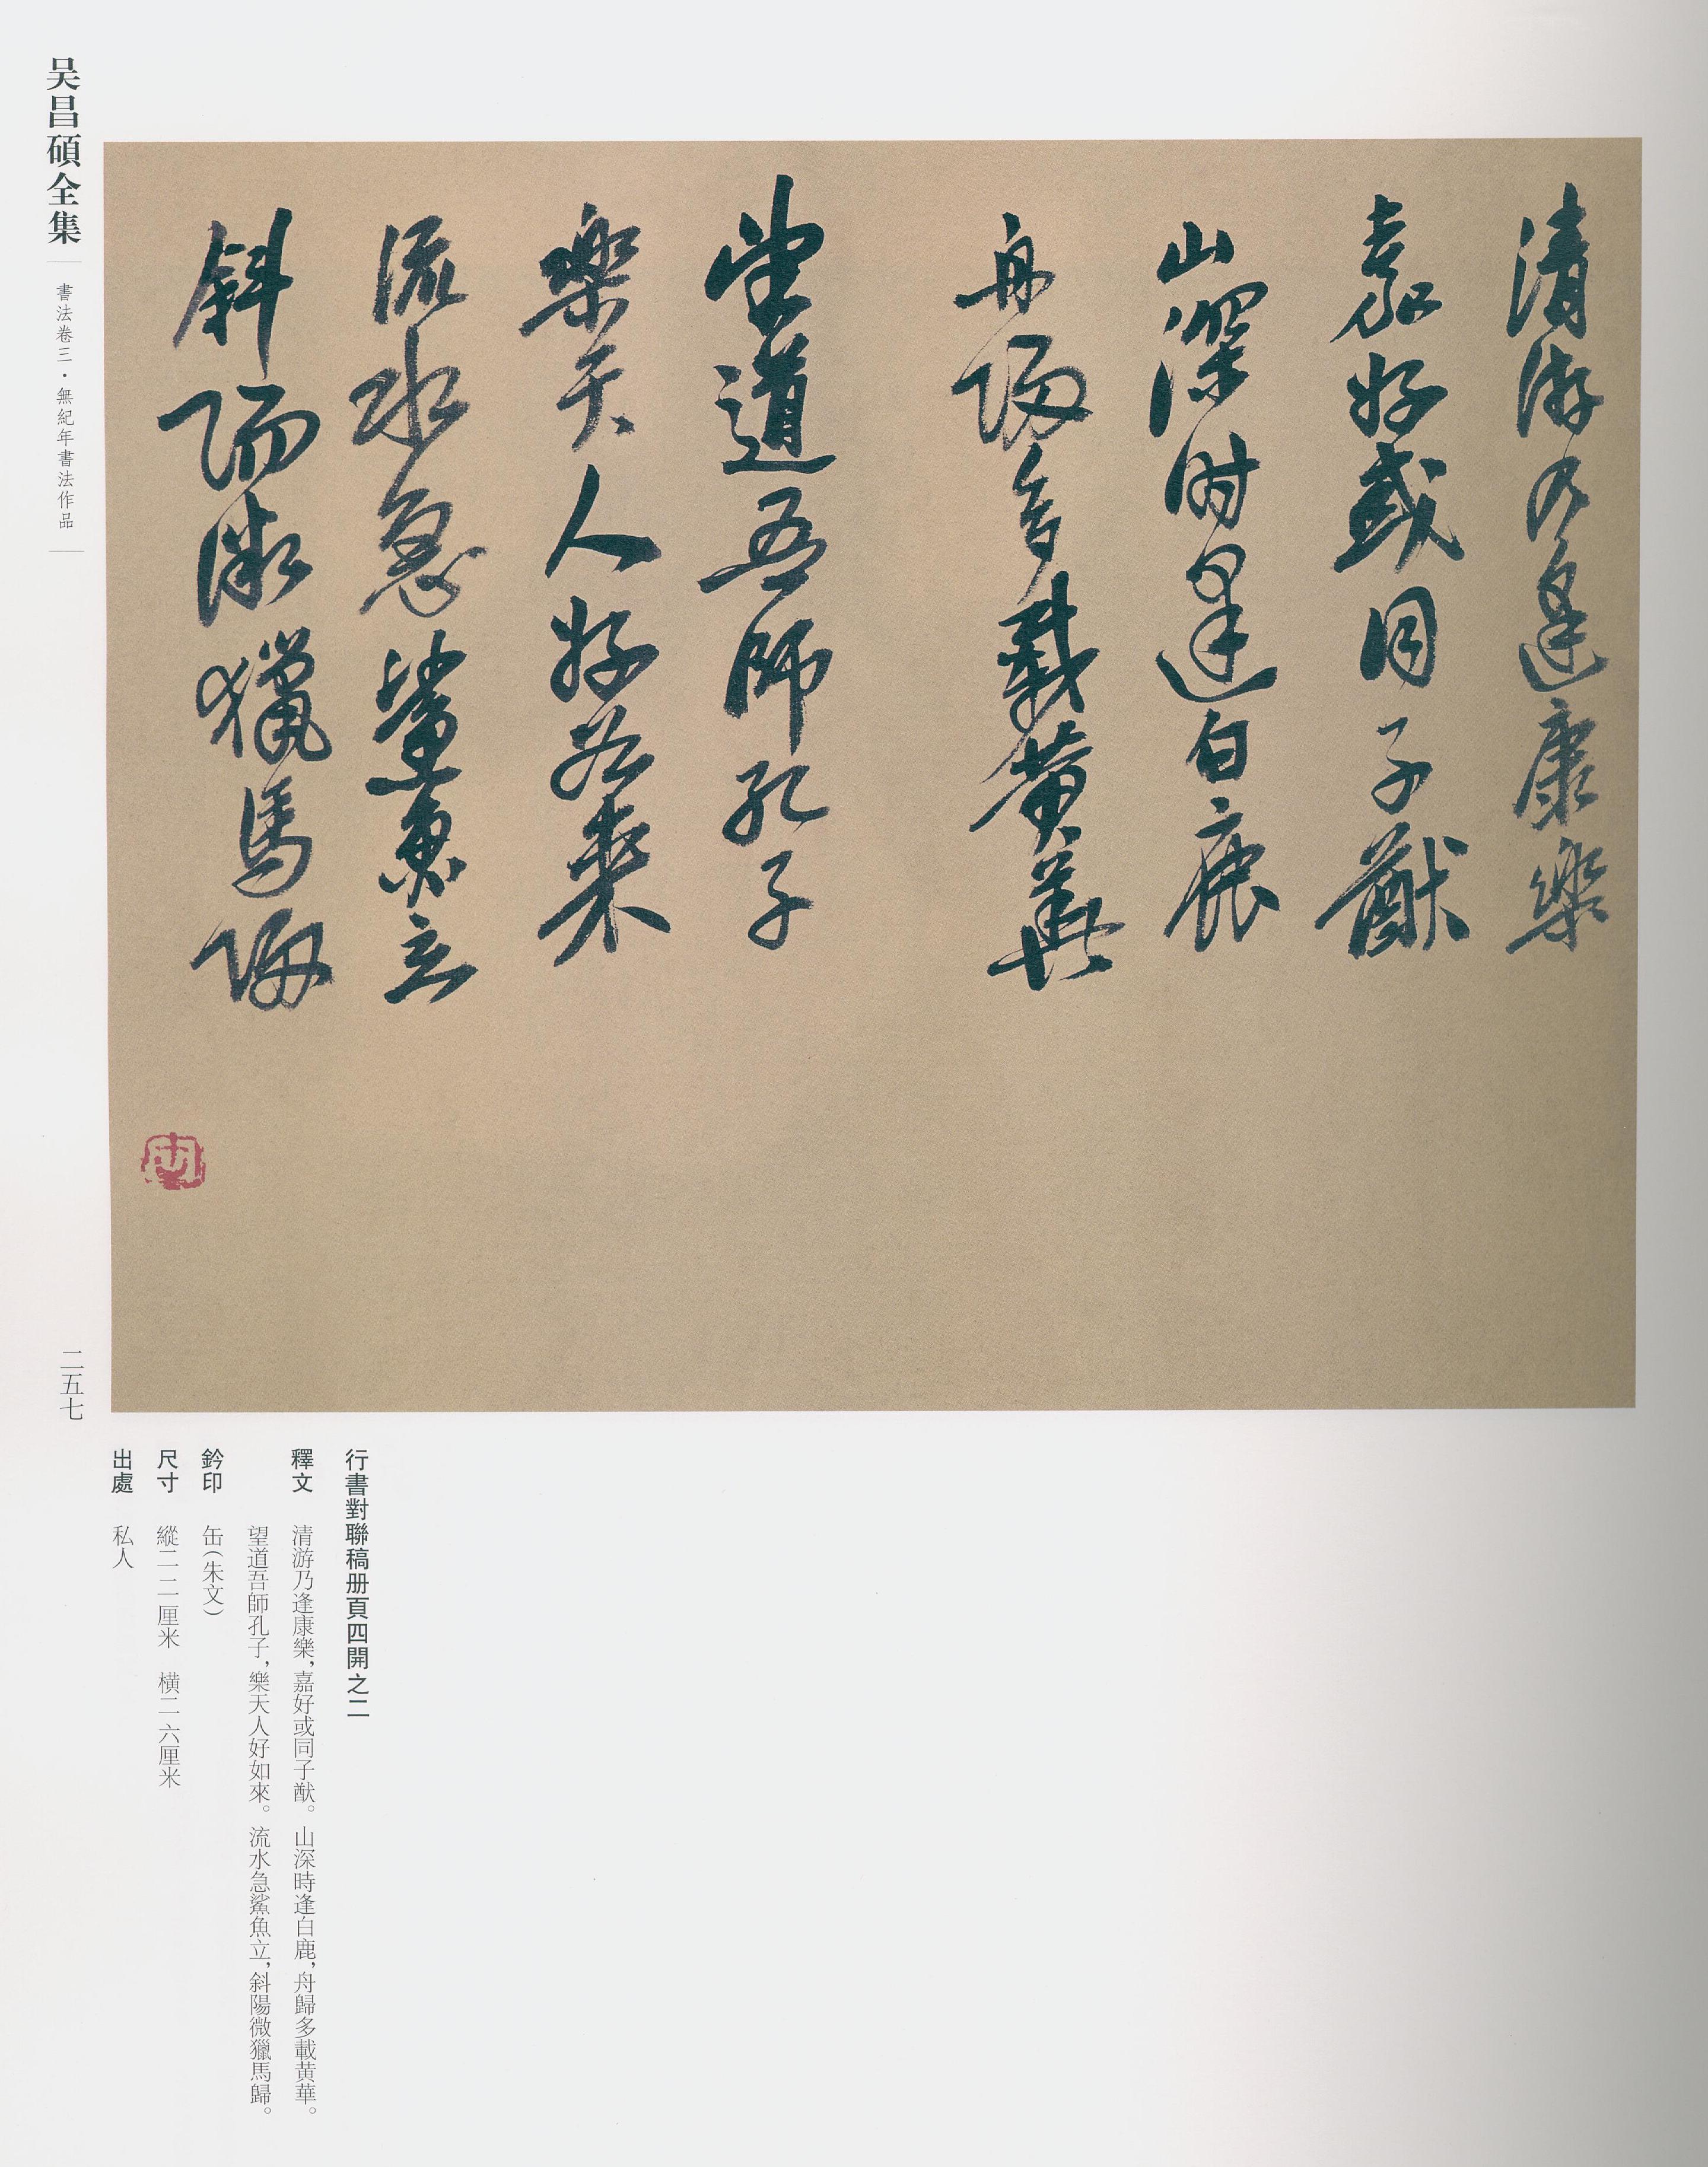 清游乃逢康樂
嘉好或同子猷
山深时逢白鹿
舟歸多載黄華
望道吾師孔子
樂天人好如來
流水急鯊魚立
斜陽微獵馬歸
缶
吴昌碩全集
書法卷三・無紀年書法作品
二五七
行書對聯稿册頁四開之二
釋文 清游乃逢康樂，嘉好或同子猷。山深時逢白鹿，舟歸多載黄華。
望道吾師孔子，樂天人好如來。流水急鯊魚立，斜陽微獵馬歸。
鈐印 缶（朱文）
尺寸 縱二二厘米 横二六厘米
出處 私人